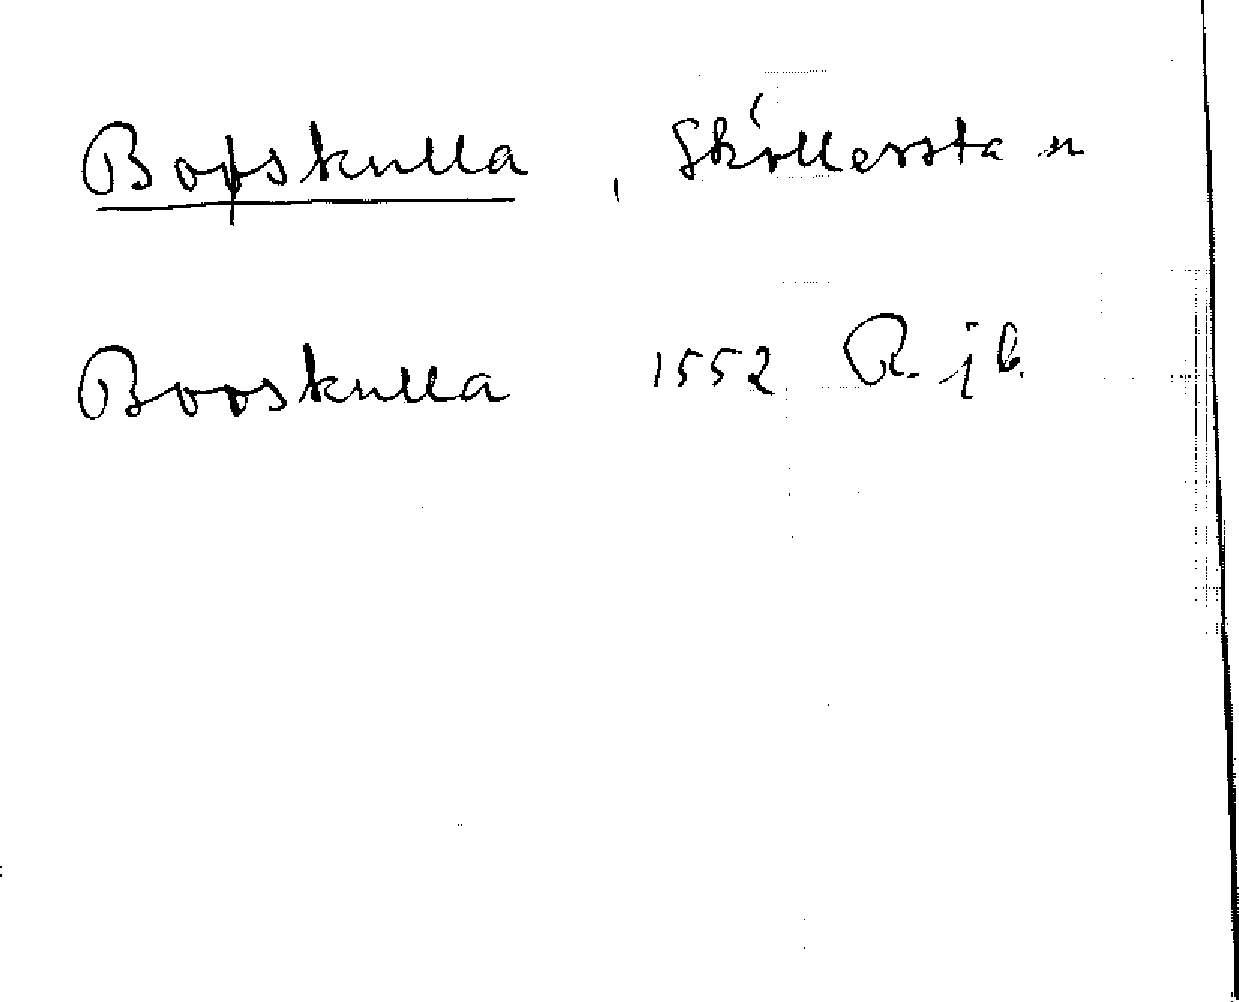 Booskulla, Sköllersta sn
Booskulla 1552 R. jb.